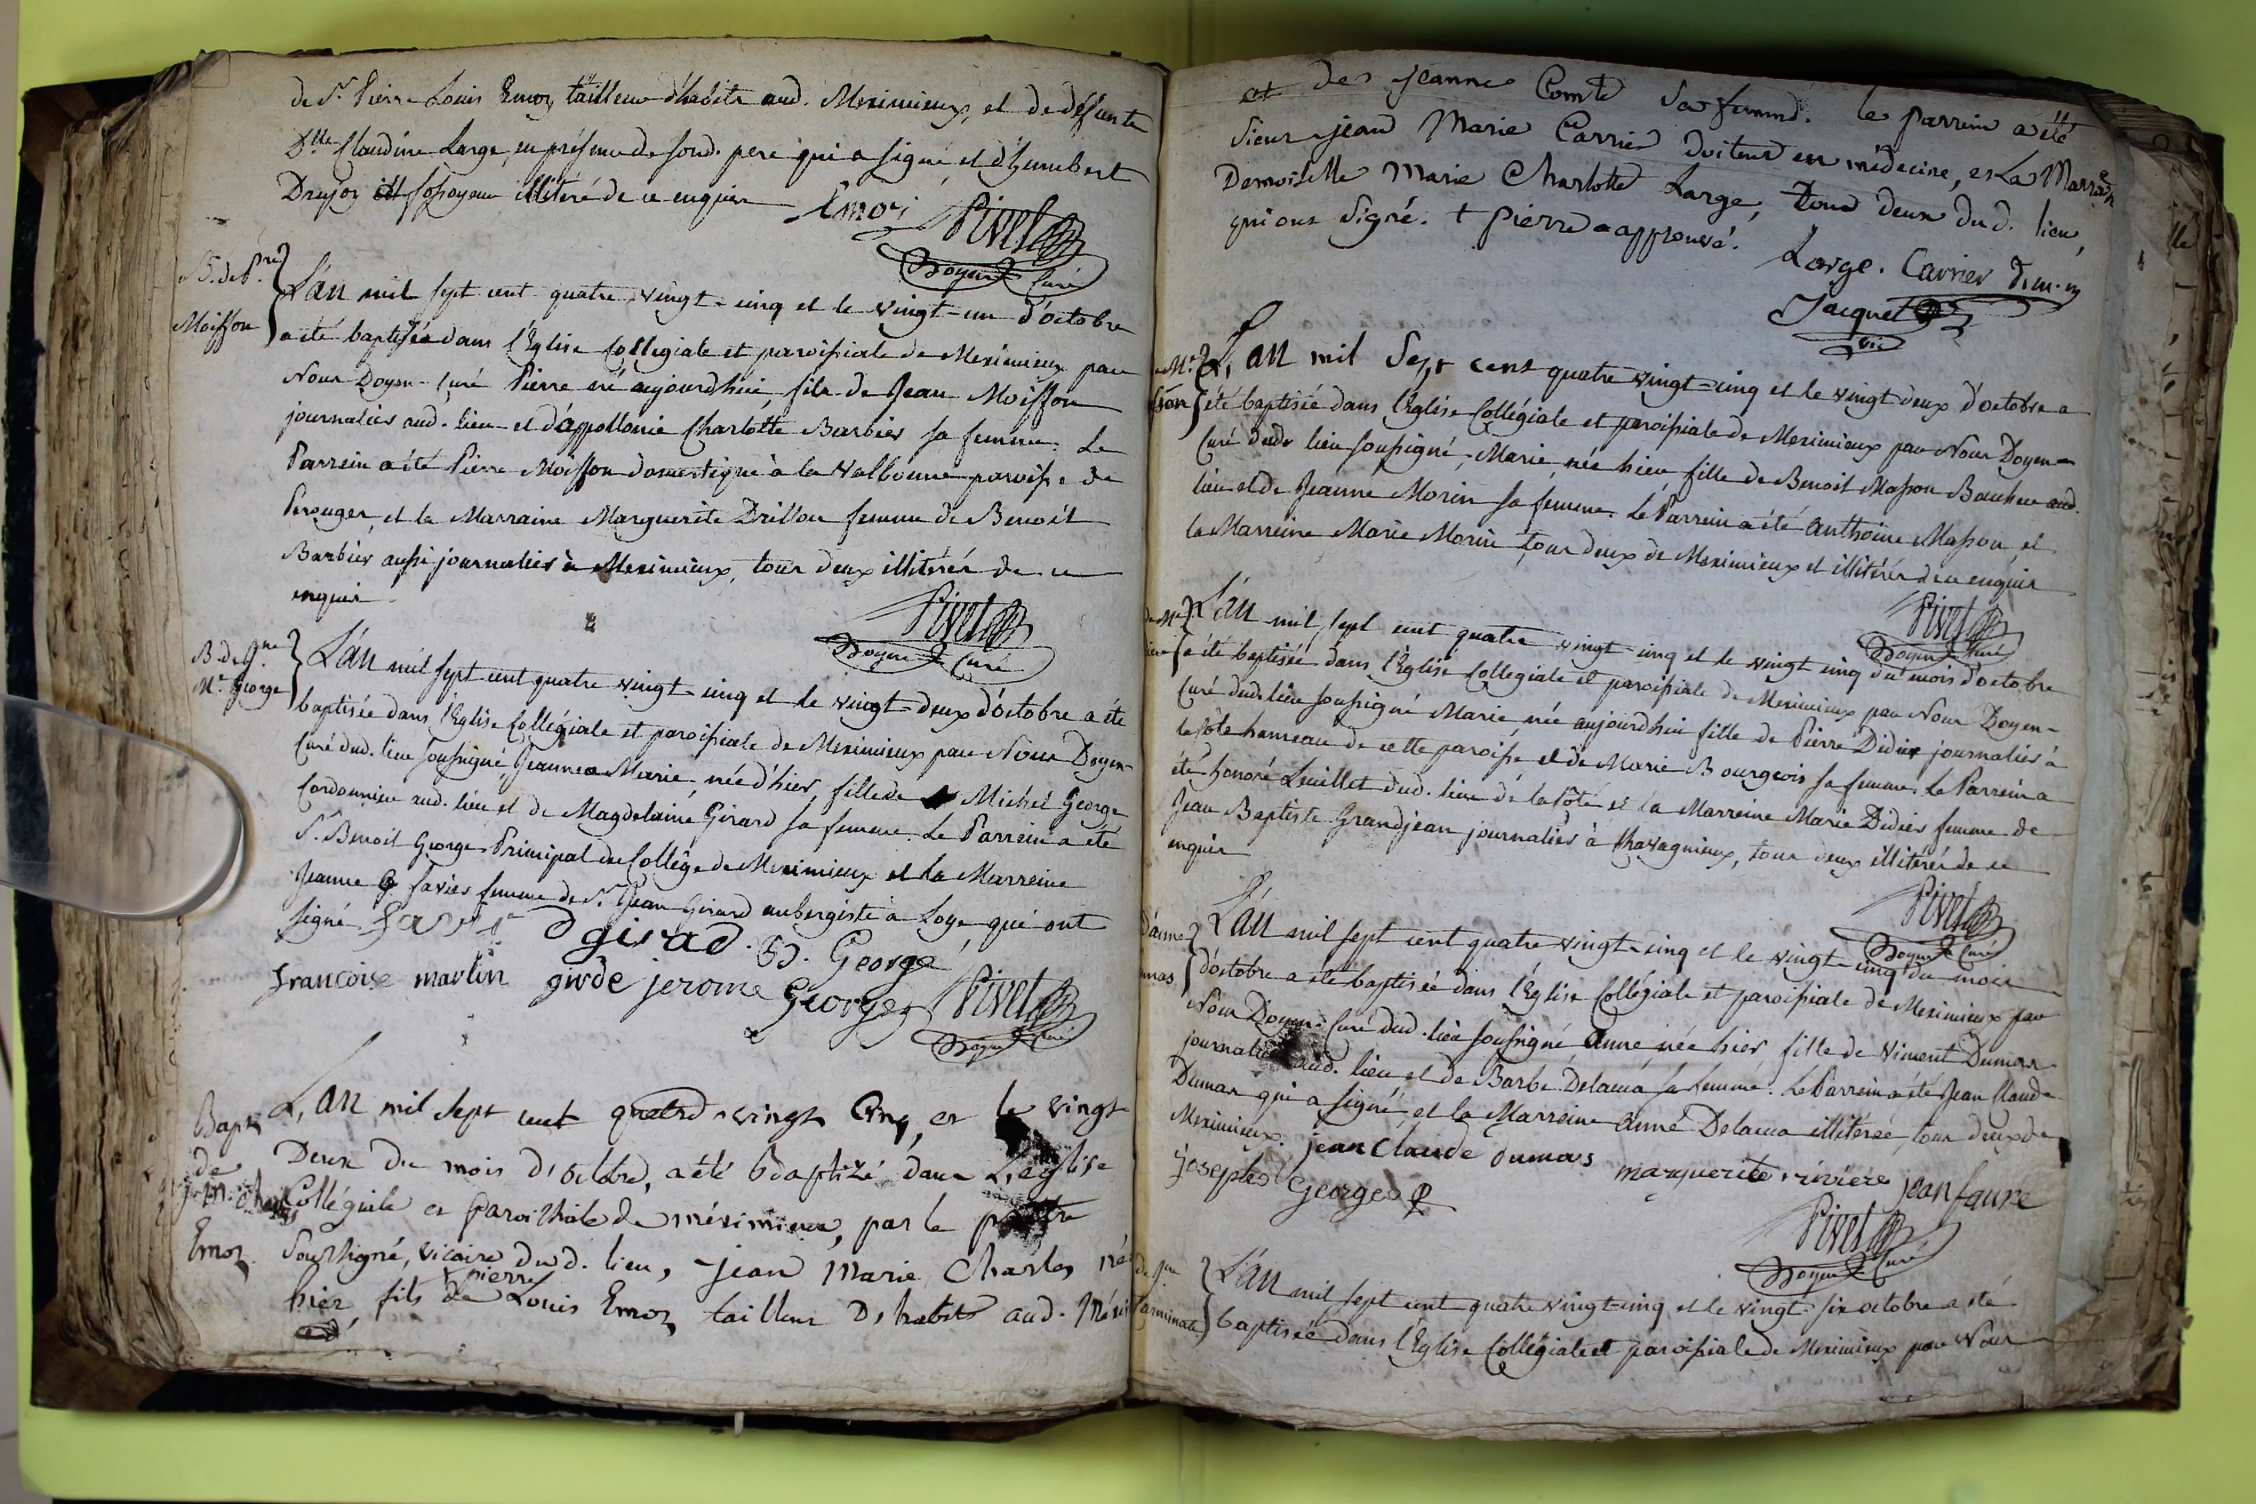 de Sr. Pierre Louis Emoz tailleur d'habits aud. Meximieux, et de défunte
Dlle Claudine Large, en présence de sond. pere qui a signé et d'humbert
Drujon fossoyeur illitéré de ce enquis Emoz
Pivet
Doyen Curé
B. de Prre
Moisson
L'an mil sept cent quatre vingt-cinq et le vingt-un d'octobre
a été baptisé dans l'Eglise Collegiale et paroissiale de Meximieux par
Nous Doyen-Curé Pierre né aujourdhui, fils de Jean Moisson
journalier aud. lieu et d'appollonie Charlotte Barbier sa femme. Le
Parrein a été Pierre Moisson domestique à la Valbonne paroisse de
Perouges, et la Marraine Marguerite Drillon femme de Benoît
Barbier aussi journalier à Meximieux, tous deux illitérés de ce
enquis.
Pivet
Doyen Curé
B. de Jne
Me George
L'an mil sept cent quatre vingt-cinq et le vingt-deux d'octobre a été
baptisée dans l'Eglise Collégiale et paroissiale de Meximieux par Nous Doyen-
Curé dud. lieu soussigné Jeanne Marie, née d'hier, fille de Michel George
Cordonnier aud. lieu et de Magdelaine Girard sa femme. Le Parrein a été
Sr. Benoit George Principal du Collège de Meximieux et la Marreine
Jeanne favier femme de Sr. Jean Girard aubergiste à Loye qui ont
signé favier girad. B. George
francoise martin girde jerome George Pivet
Doyen Curé
Bapt.
de
j. m. Charles
Emoz
L'an mil sept cent quatre vingt Cinq, et le vingt
Deux du mois d'octobre, a été baptizé dans L'eglise
Collégiale et paroissiale de méximieux, par le prêtre
Soussigné, vicaire dud. lieu, jean Marie Charles né
hier, fils de pierre Louis Emoz tailleur D'habits aud. Méxi
et de jeanne Comte Sa femme. le parrein a été
Sieur jean Marie Carrier Docteur en médecine, et La Marrein
Demoiselle Marie Charlotte Large, Tous deux du d. lieu,
qui ont signé. + pierre approuvé.
Large. Carrier D. m. m
Jacquet
vic
Me
sson
L'an mil Sept cent quatre vingt-cinq et le vingt deux d'octobre a
été baptisée dans l'Eglise Collégiale et paroissiale de Meximieux par Nous Doyen-
Curé dud. lieu soussigné, Marie, née hier, fille de Benoit Masson Boucher aud.
lieu et de Jeanne Morin sa femme. Le Parrein a été Anthoine Masson et
la Marreine Marie Morin tous deux de Meximieux et illitérés de ce enquis
Pivet
Doyen Curé
de Me
L'an mil sept cent quatre vingt-cinq et le vingt cinq du mois d'octobre
a été baptisée dans l'Eglise Collegiale et paroissiale de Meximieux par Nous Doyen-
Curé dud. lieu soussigné Marie, née aujourdhui fille de Pierre Didier journalier à
la Côte hameau de cette paroisse et de Marie Bourgeois sa femme. Le Parrein a
été honoré Luillet dud. lieu de la Côte et la Marreine Marie Didier femme de
Jean Baptiste Grandjean journalier à Chavagnieux, tous deux illitérés de ce
enquis
Pivet
Doyen Curé
d'anne
mas
L'an mil sept cent quatre vingt-cinq et le vingt-cinq du mois
d'octobre a été baptisée dans l'Eglise Collégiale et paroissiale de Meximieux par
Nous Doyen-Curé dud. lieu soussigné Anne née hier fille de Vincent Dumas
journalier aud. lieu et de Barbe Delacua sa femme. Le Parrein a été Jean Claude
Dumas qui a signé, et la Marreine Anne Delacua illitérée, tous deux de
Meximieux. jean claude dumas marguerite riviere jean faure
joseph George
Pivet
Doyen Curé
de Jne
Carminate
L'an mil sept cent quatre vingt-cinq et le vingt-six octobre a été
baptisée dans l'Eglise Collégiale et paroissiale de Meximieux par Nous